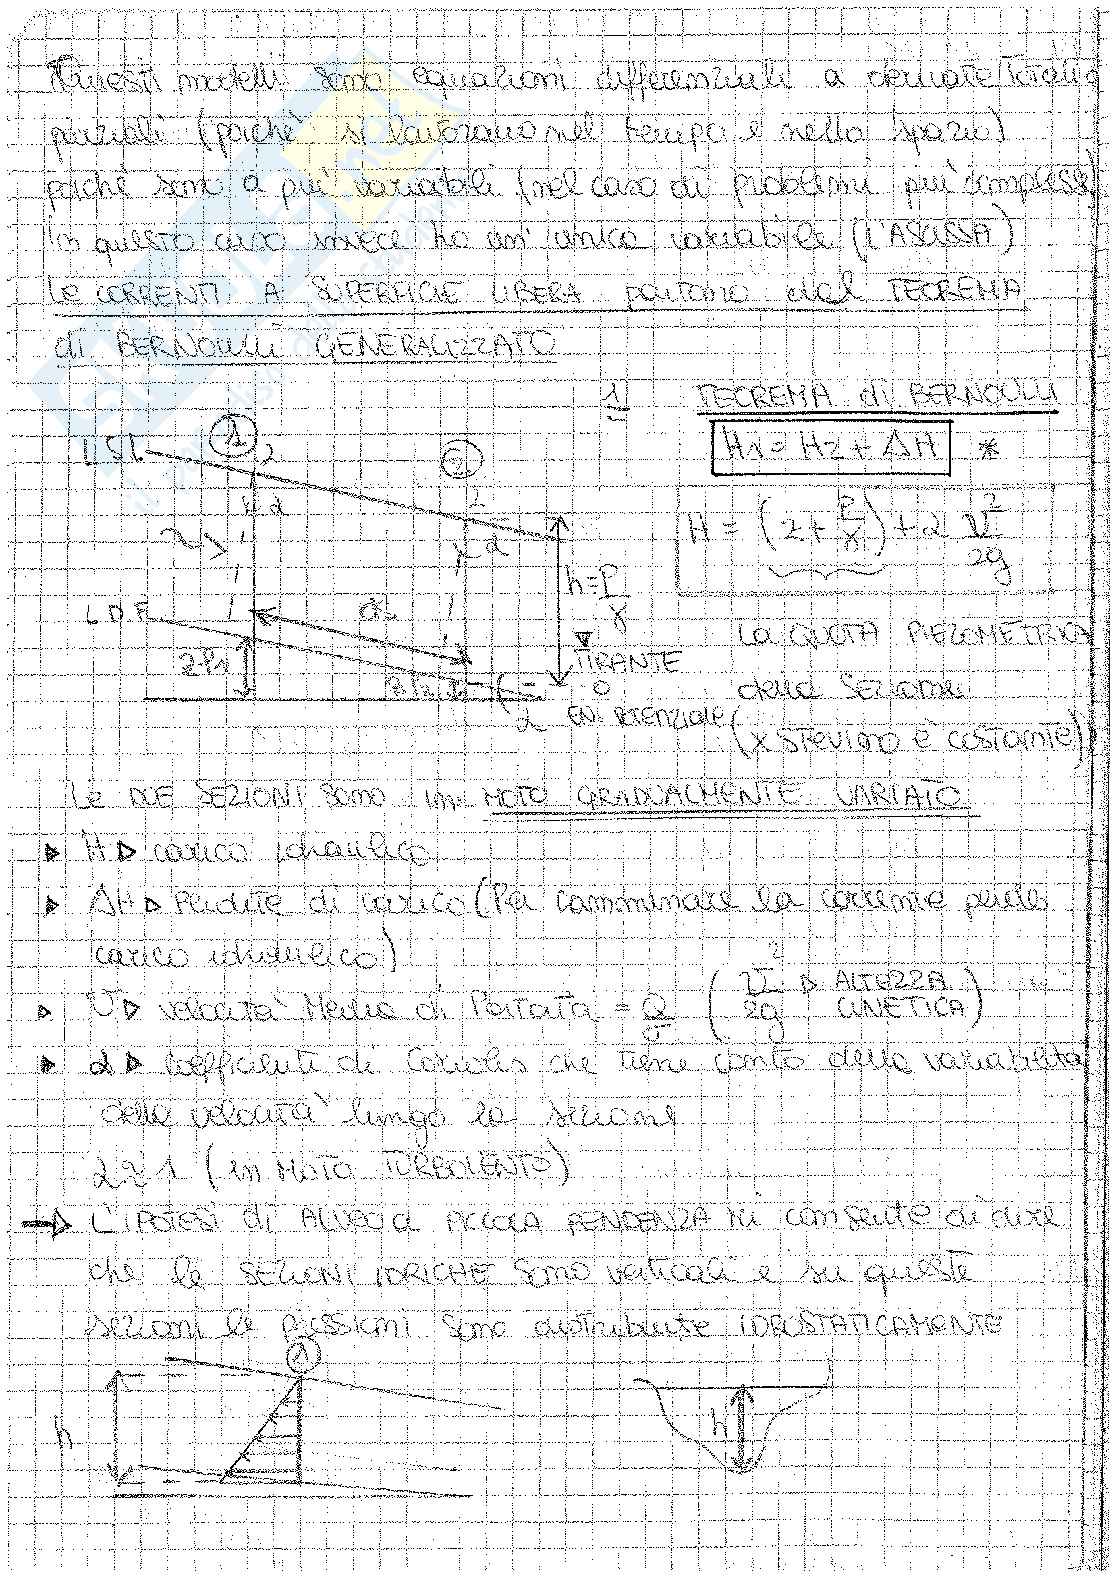 Questi modelli sono equazioni differenziali a derivate totali o
parziali (poichè si lavorano nel tempo e nello spazio)
poichè sono a piu' variabili (nel caso di problemi piu' complessi)
In questo caso invece ho un' unica variabile (l'ASCISSA)
Le CORRENTI A SUPERFICIE LIBERA partono dal TEOREMA
di BERNOULLI GENERALIZZATO
1 TEOREMA di BERNOULLI
H1 = H2 + ΔH *
L.S.L. 1 2
α α
H = (z + P/γ) + α V²/2g
h = P/γ
L.D.F.
LA QUOTA PIEZOMETRICA
TIRANTE
della SEZIONE
O
EN. POTENZIALE
(x STEVINO è COSTANTE)
α
Le DUE SEZIONI sono in MOTO GRADUALMENTE VARIATO
H ▷ carico idraulico
ΔH ▷ Perdite di carico (Per camminare la corrente perde
carico idraulico)
U ▷ velocità Media di Portata = Q/σ (U²/2g ▷ ALTEZZA CINETICA)
α ▷ Coefficienti di Coriolis che tiene conto della variabilità
della velocità lungo la sezione
α ≃ 1 (in MOTO TURBOLENTO)
→ L'IPOTESI di ALVEO a PICCOLA PENDENZA mi consente di dire
che le SEZIONI IDRICHE sono verticali e su queste
sezioni le pressioni sono distribuite IDROSTATICAMENTE
1
h
h